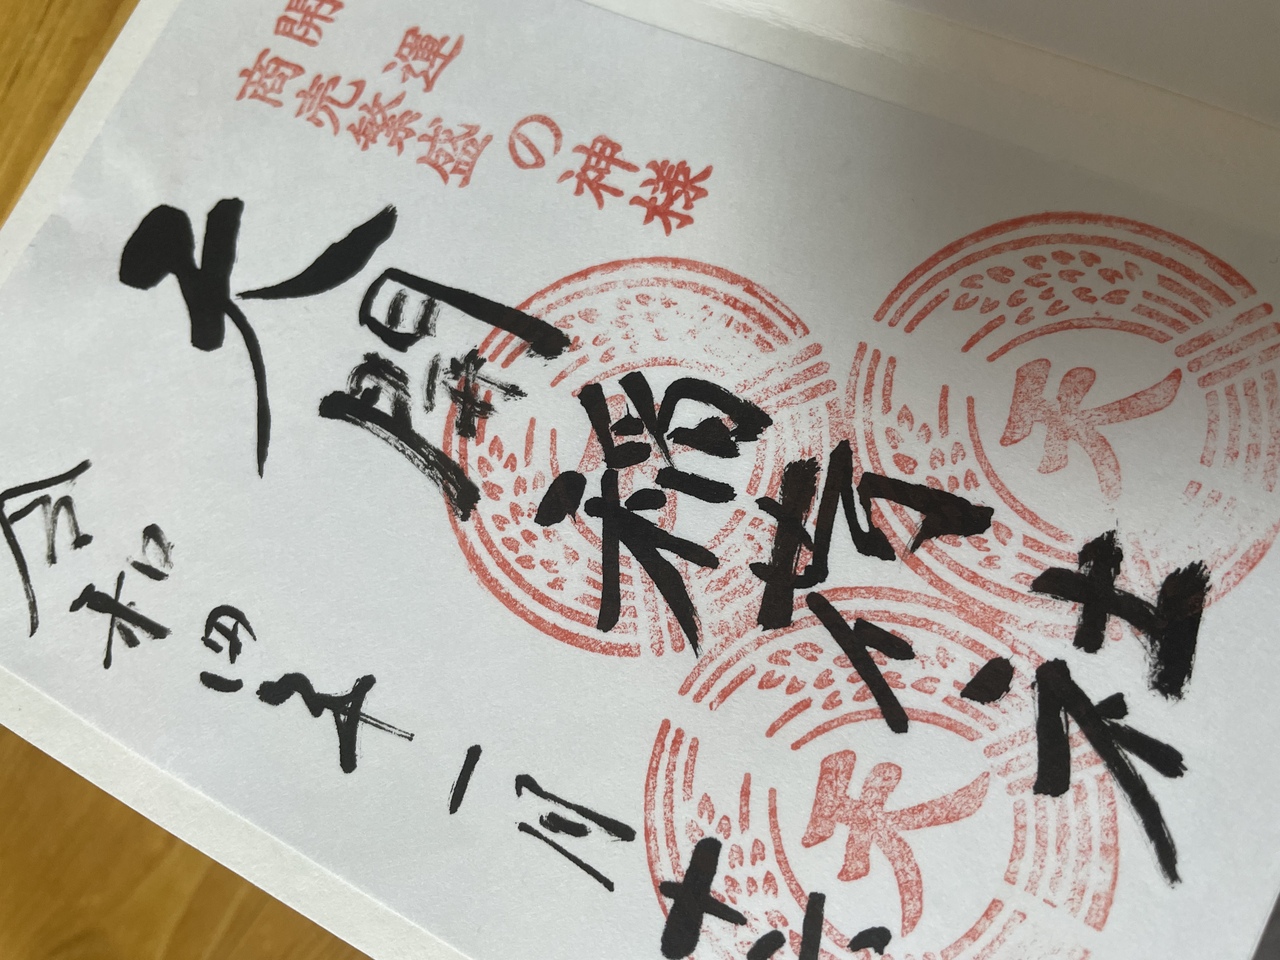 開運
商売繁盛
の神様
天開稲荷社
天
天
令和四年一月